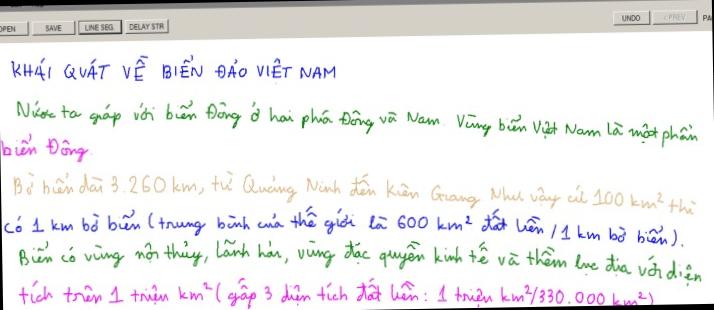 OPEN SAVE LINE SEG. DELAY STR UNDO <PREV PA
KHÁI QUÁT VỀ BIỂN ĐẢO VIỆT NAM
Nước ta giáp với biển Đông ở hai phía Đông và Nam. Vùng biển Việt Nam là một phần
biển Đông.
Bờ biển dài 3.260 km, từ Quảng Ninh đến Kiên Giang Như vậy cứ 100 km² thì
có 1 km bờ biển (trung bình của thế giới là 600 km² đất liền / 1 km bờ biển).
Biển có vùng nội thủy, lãnh hải, vùng đặc quyền kinh tế và thềm lục địa với diện
tích trên 1 triệu km² (gấp 3 diện tích đất liền: 1 triệu km²/330.000 km²)